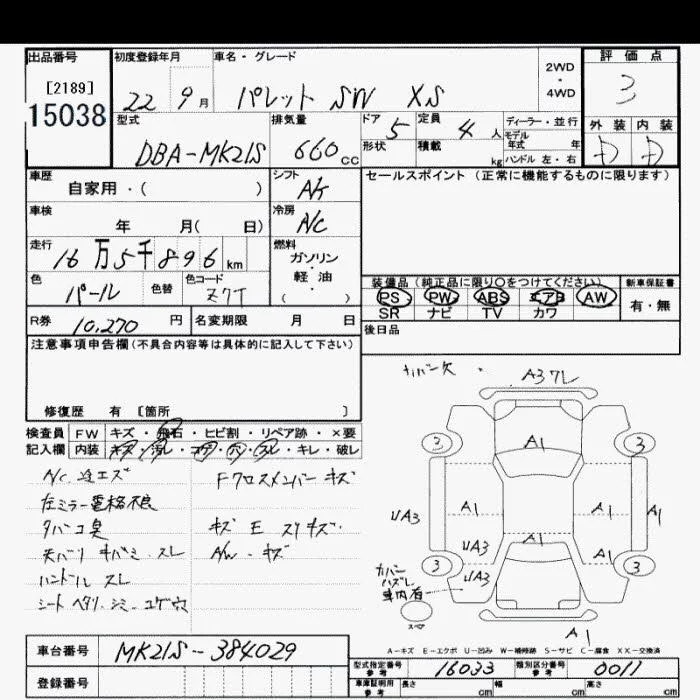 出品番号 初度登録年月 車名・グレード 2WD・4WD 評価点
[2189]
15038
22 9月 パレット SW XS 3
型式 排気量 ドア 5 定員 4人 ディーラー・並行 外装 内装
DBA-MK21S 660cc 形状 積載 kg モデル年式 年 ハンドル 左・右
車歴 自家用・( ) シフト セールスポイント (正常に機能するものに限ります)
車検 年 月( 日) 冷房 A/C
走行 16万5千896km 燃料 ガソリン・軽油 ( )
色 パール 色替 色コード Z7T
装備品 (純正品に限り○をつけてください) 新車保証書
PS PW ABS エアB AW 有・無
SR ナビ TV カワ
R券 10,270円 名変期限 月 日 後日品
注意事項申告欄(不具合内容等は具体的に記入して下さい)
修復歴 有 [箇所 ]
検査員 FW キズ・飛石・ヒビ割・リペア跡・×要
記入欄 内装 キズ・汚レ・コゲ・穴・スレ・キレ・破レ
ナンバー欠 A3ワレ
左ミラー電格不良
タバコ臭
ハンドル スレ
Fクロスメンバー キズ
A/W キズ
3 A1 3
UA3 A1 A1
UA3 A1 A1
3 UA3 3
カバーハズレ車内有
スペア
A1
A-キズ E-エクボ U-凹み W-補修跡 S-サビ C-腐食 XX-交換済
車台番号 MK21S-384029
登録番号
型式指定番号 参考 16033 類別区分番号 参考 0011
車庫証明用 参考 長さ cm 幅 cm 高さ cm